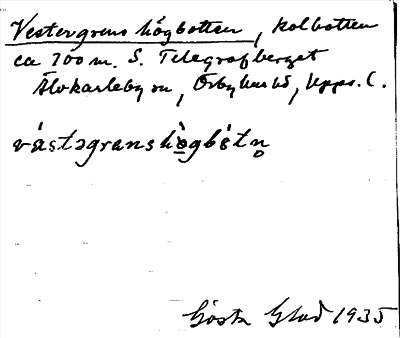 Vestergrens högbotten, kolbotten
ca 700 m. S. Telegrafberget
Älvkarleby sn, Örbyhus hd, Upps. l.
västəgranshògbótn̥
Gösta Glad 1935